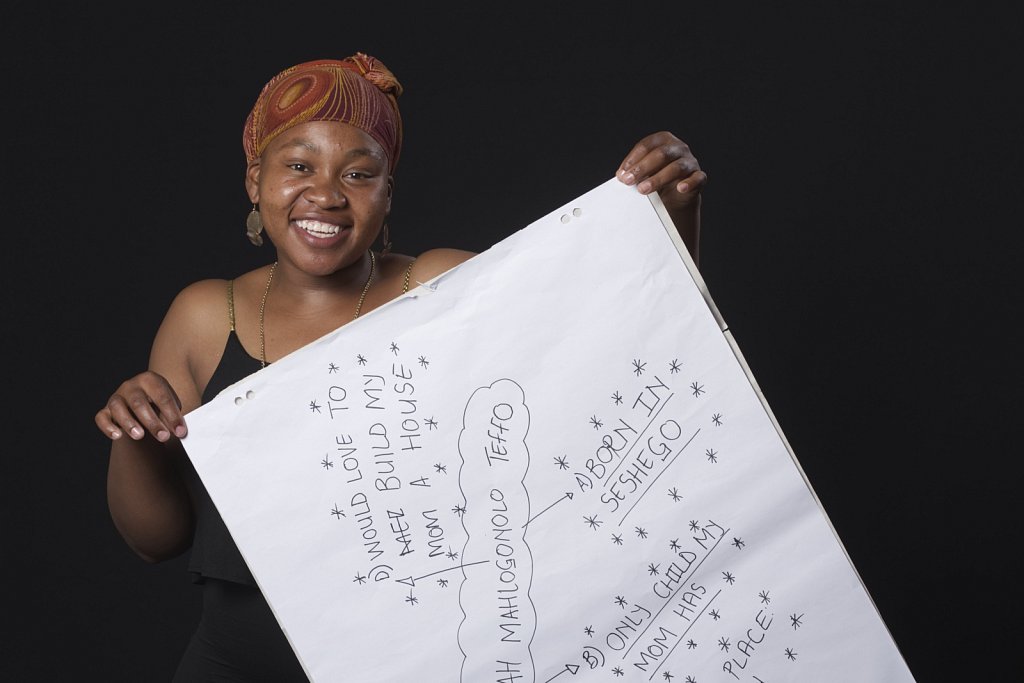 D) WOULD LOVE TO
BUILD MY
MOM A HOUSE
AH MAHLOGONOLO TEFFO
A) BORN IN
SESHEGO
B) ONLY CHILD MY
MOM HAS
PLACE: